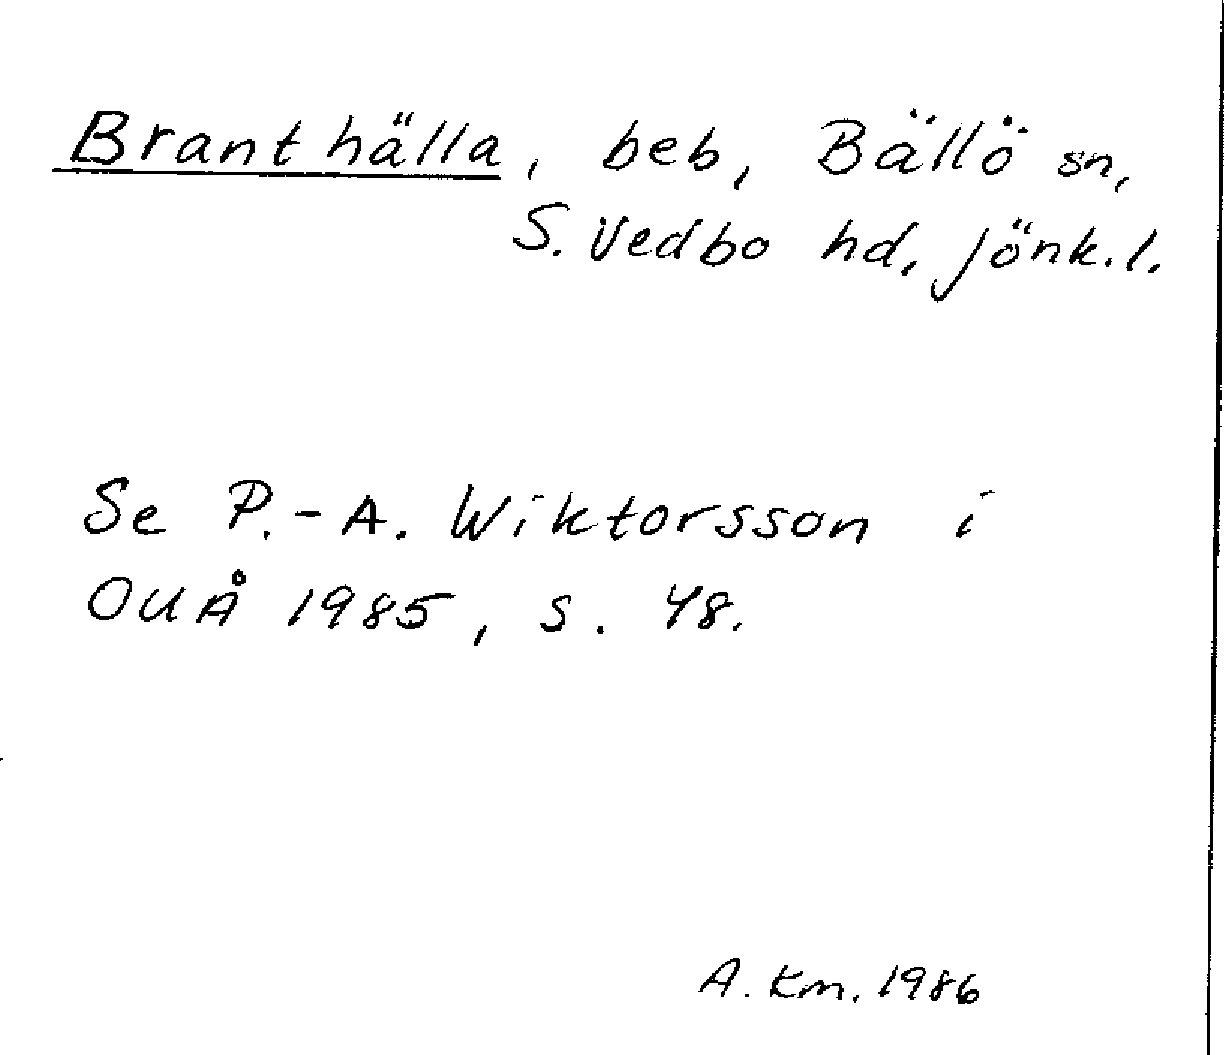 Branthälla, beb, Bällö sn,
S. Vedbo hd, Jönk.l.
Se P.-A. Wiktorsson i
OUÅ 1985, s. 48.
A. Km. 1986